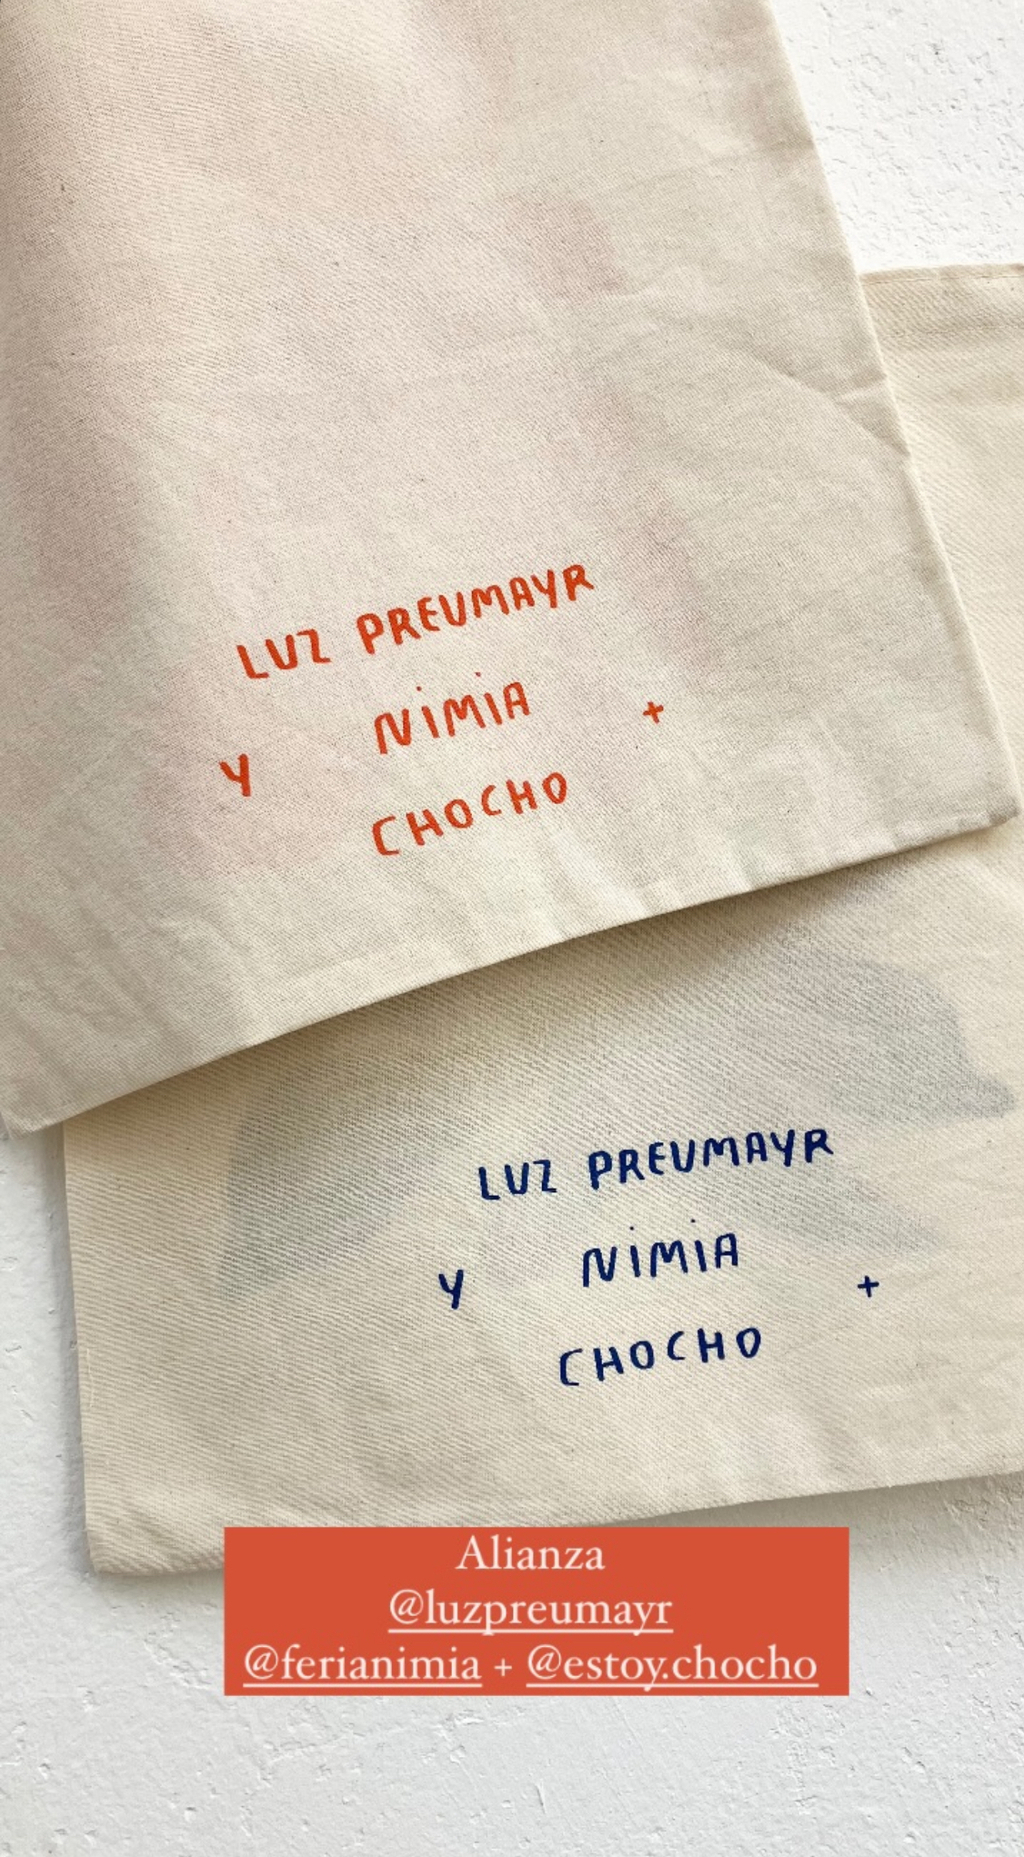 LUZ PREUMAYR
NIMIA
Y +
CHOCHO
LUZ PREUMAYR
NIMIA
Y +
CHOCHO
Alianza
@luzpreumayr
@ferianimia + @estoy.chocho